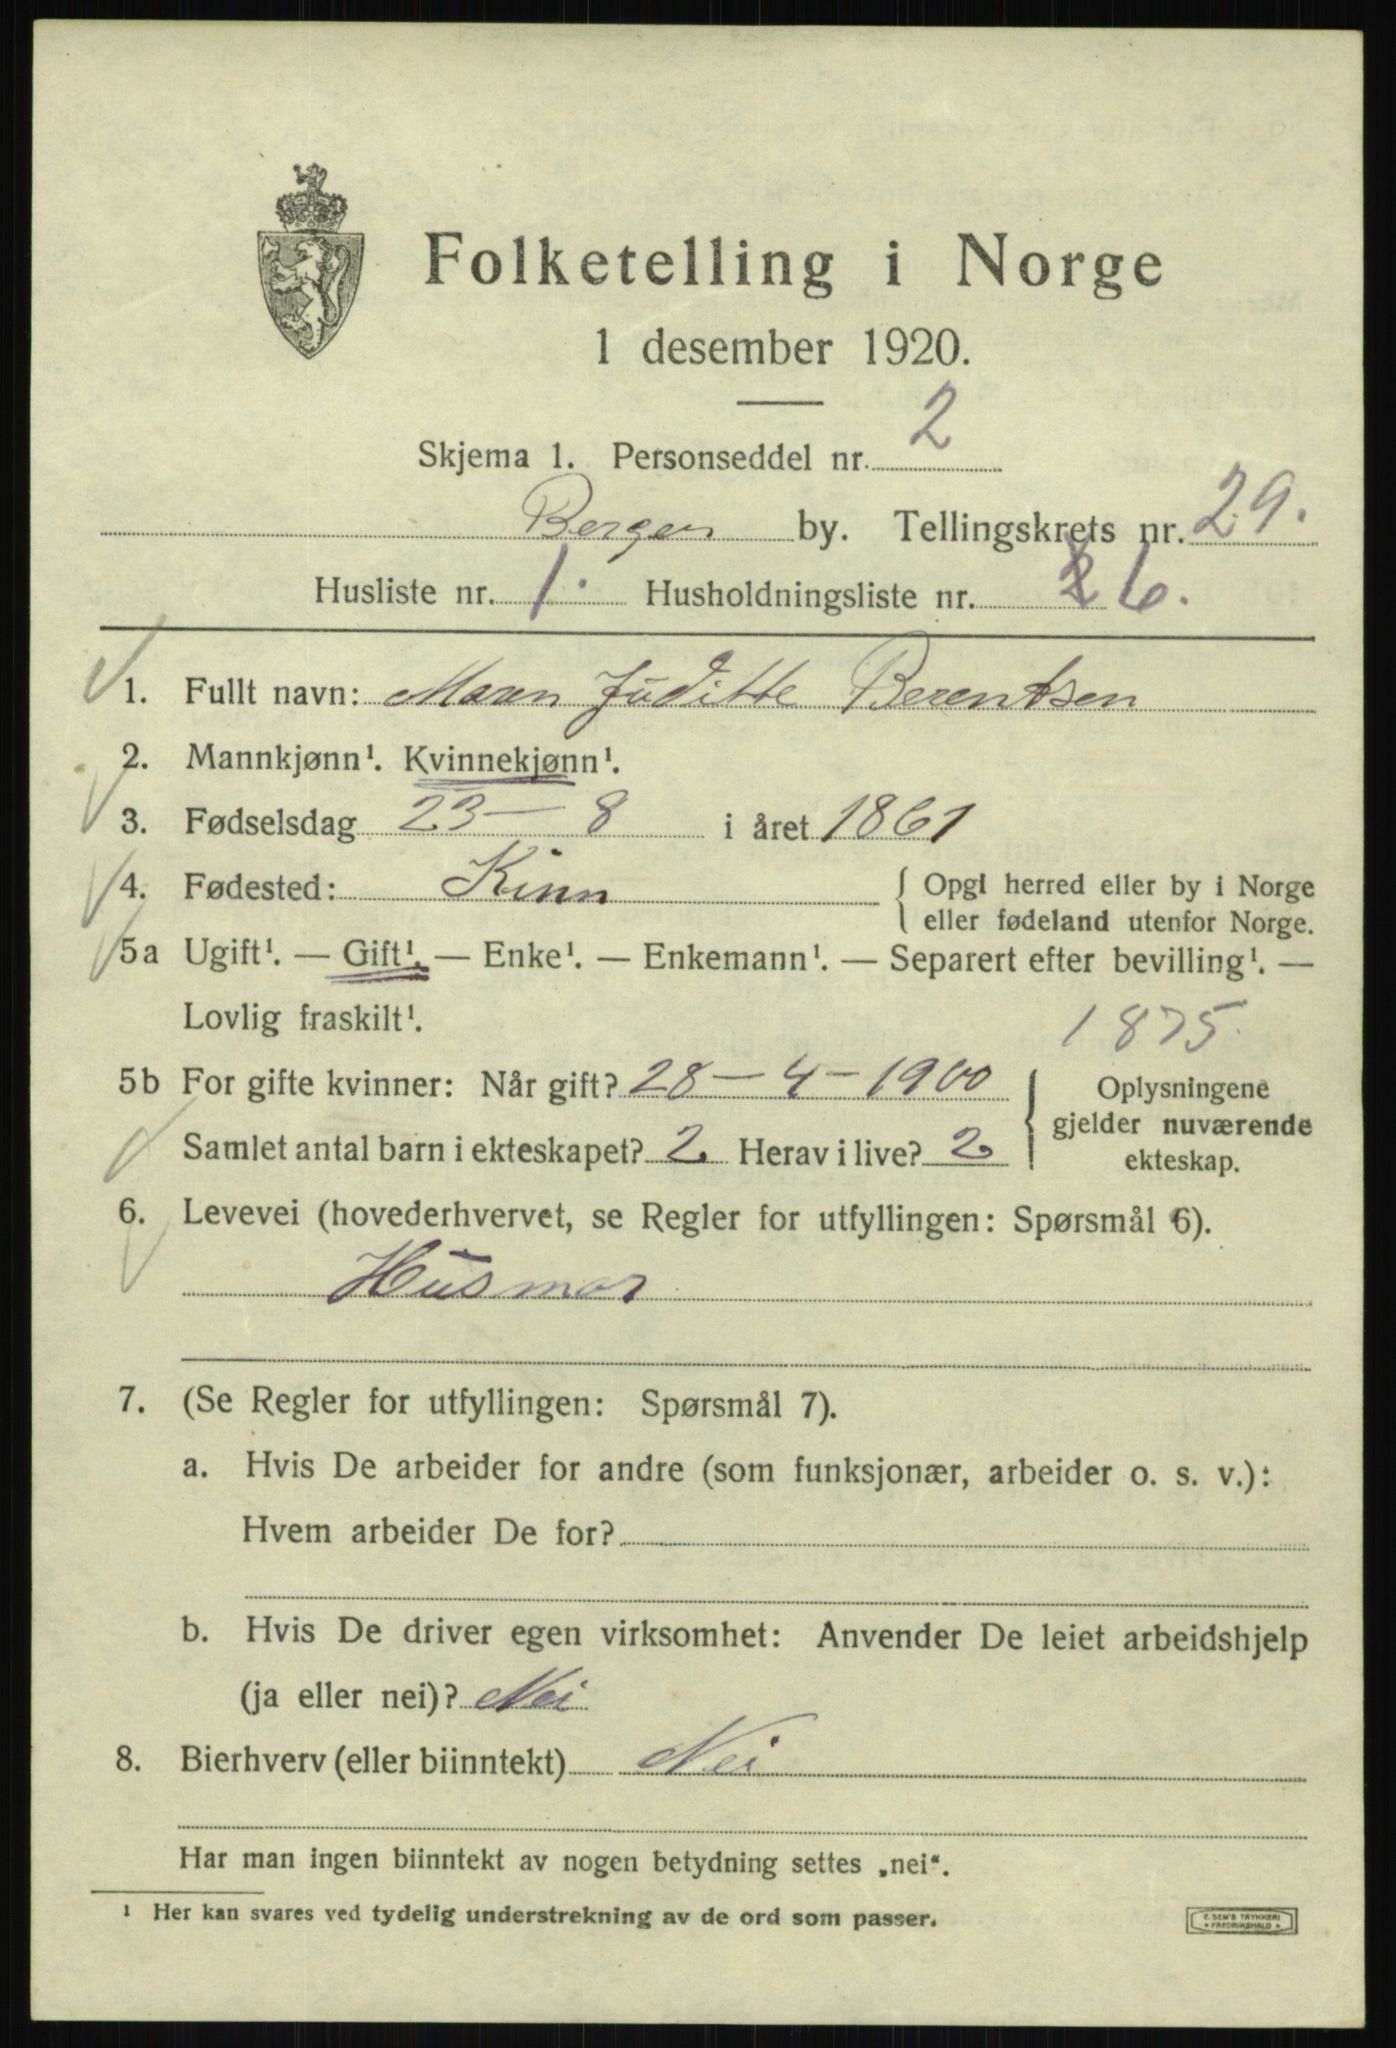 Folketelling i Norge
1 desember 1920.
Skjema 1. Personseddel nr. 2
Bergen by. Tellingskrets nr. 29.
Husliste nr. 1. Husholdningsliste nr. 6.
1. Fullt navn: Maren Juditte Berentsen
2. Mannkjønn¹. Kvinnekjønn¹.
3. Fødselsdag 23 – 8 i året 1861
4. Fødested: Kinn { Opgi herred eller by i Norge
eller fødeland utenfor Norge.
5a Ugift¹. — Gift¹. — Enke¹. — Enkemann¹. — Separert efter bevilling¹. —
Lovlig fraskilt¹.
1875
5b For gifte kvinner: Når gift? 28 – 4 – 1900 { Oplysningene
gjelder nuværende
Samlet antal barn i ekteskapet? 2 Herav i live? 2 ekteskap.
6. Levevei (hovederhvervet, se Regler for utfyllingen: Spørsmål 6).
Husmor
7. (Se Regler for utfyllingen: Spørsmål 7).
a. Hvis De arbeider for andre (som funksjonær, arbeider o. s. v.):
Hvem arbeider De for?
b. Hvis De driver egen virksomhet: Anvender De leiet arbeidshjelp
(ja eller nei)? Nei
8. Bierhverv (eller biinntekt) Nei
Har man ingen biinntekt av nogen betydning settes „nei“.
¹ Her kan svares ved tydelig understrekning av de ord som passer.
E. SEM'S TRYKKERI
• FREDRIKSHALD •